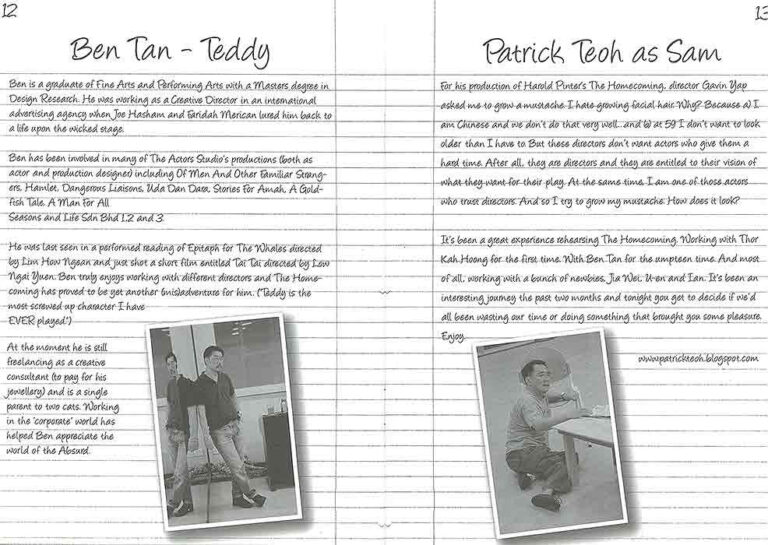 12
Ben Tan - Teddy
Ben is a graduate of Fine Arts and Performing Arts with a Masters degree in
Design Research. He was working as a Creative Director in an international
advertising agency when Joe Hasham and Faridah Merican lured him back to
a life upon the wicked stage.
Ben has been involved in many of The Actors Studio's productions (both as
actor and production designer) including Of Men And Other Familiar Strang-
ers, Hamlet, Dangerous Liaisons, Uda Dan Dara, Stories For Amah, A Gold-
fish Tale, A Man For All
Seasons and Life Sdn Bhd 1,2 and 3.
He was last seen in a performed reading of Epitaph for The Whales directed
by Lim How Ngean and just shot a short film entitled Tai Tai directed by Lew
Ngai Yuen. Ben truly enjoys working with different directors and The Home-
coming has proved to be yet another (mis)adventure for him. ("Teddy is the
most screwed up character I have
EVER played.")
At the moment he is still
freelancing as a creative
consultant (to pay for his
jewellery) and is a single
parent to two cats. Working
in the 'corporate' world has
helped Ben appreciate the
world of the Absurd.
13
Patrick Teoh as Sam
For his production of Harold Pinter's The Homecoming, director Gavin Yap
asked me to grow a mustache. I hate growing facial hair. Why? Because a) I
am Chinese and we don't do that very well...and b) at 59 I don't want to look
older than I have to. But these directors don't want actors who give them a
hard time. After all, they are directors and they are entitled to their vision of
what they want for their play. At the same time, I am one of those actors
who trust directors. And so I try to grow my mustache. How does it look?
It's been a great experience rehearsing The Homecoming. Working with Thor
Kah Hoong for the first time. With Ben Tan for the umpteen time. And most
of all, working with a bunch of newbies, Jia Wei, U-en and Ian. It's been an
interesting journey the past two months and tonight you get to decide if we'd
all been wasting our time or doing something that brought you some pleasure.
Enjoy.
www.patrickteoh.blogspot.com